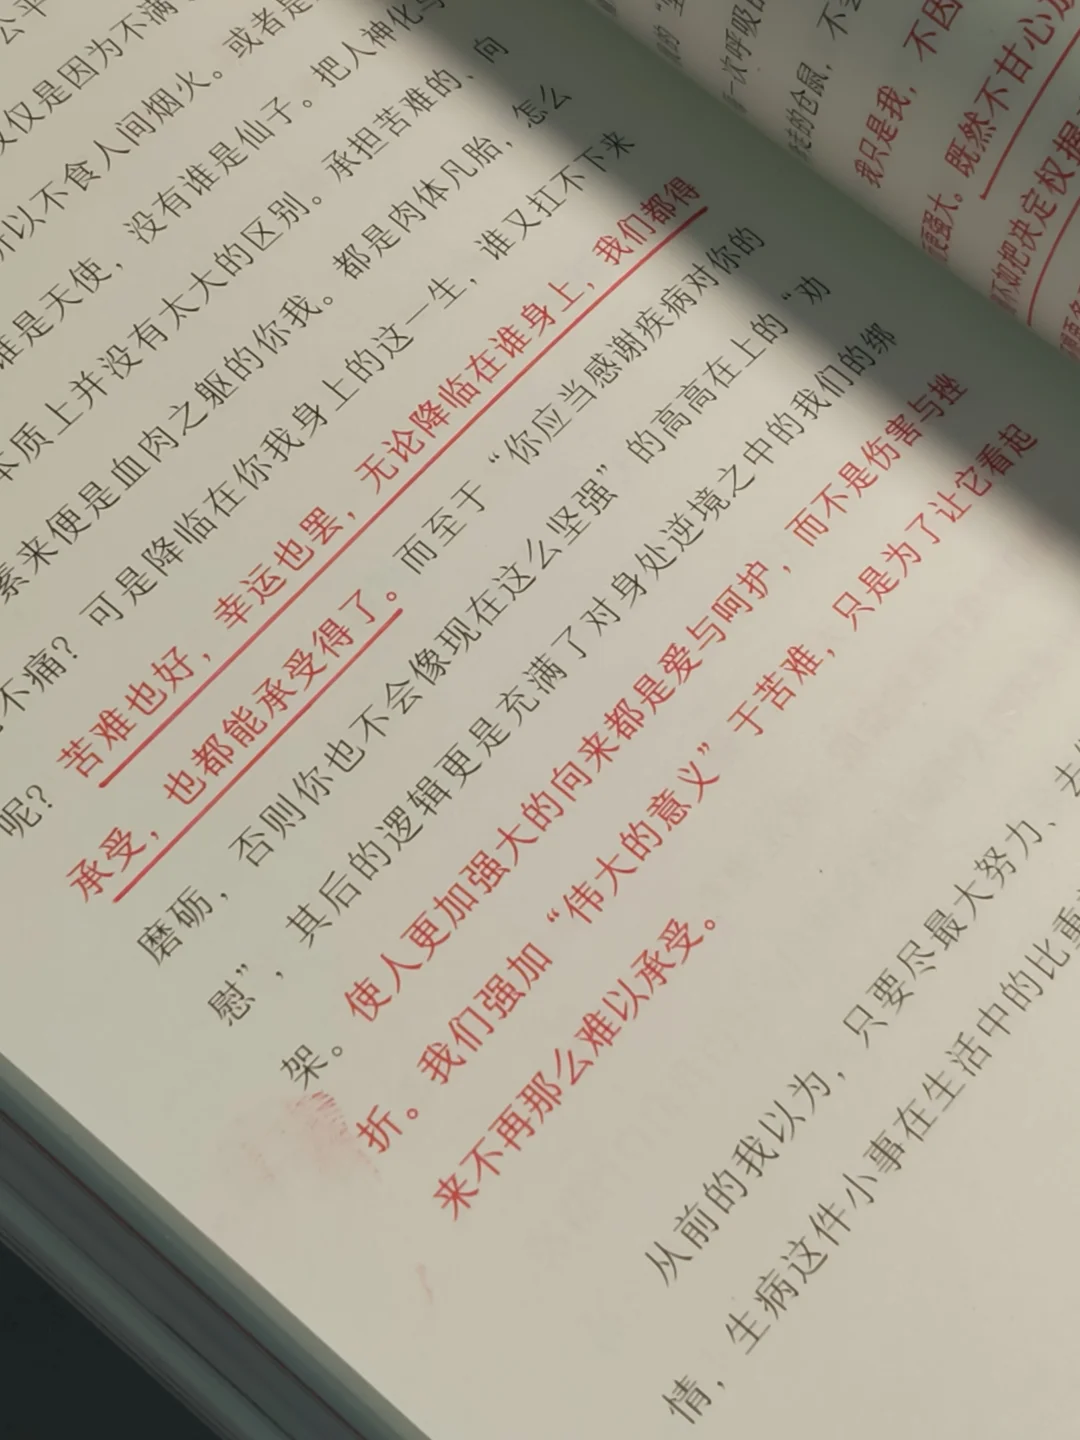 公平
仅仅是因为不满
所以不食人间烟火。或者是
谁是天使，没有谁是仙子。把人神化与
本质上并没有太大的区别。承担苦难的、向
素来便是血肉之躯的你我。都是肉体凡胎，怎么
不痛？可是降临在你我身上的这一生，谁又扛不下来
呢？苦难也好，幸运也罢，无论降临在谁身上，我们都得
承受，也都能承受得了。而至于“你应当感谢疾病对你的
磨砺，否则你也不会像现在这么坚强”的高高在上的“劝
慰”，其后的逻辑更是充满了对身处逆境之中的我们的绑
架。使人更加强大的向来都是爱与呵护，而不是伤害与挫
折。我们强加“伟大的意义”于苦难，只是为了让它看起
来不再那么难以承受。
从前的我以为，只要尽最大努力、去
情，生病这件小事在生活中的比重
一次呼吸
走的仓鼠，不
我只是我，不因
更强大。既然不甘心
不如把决定权握